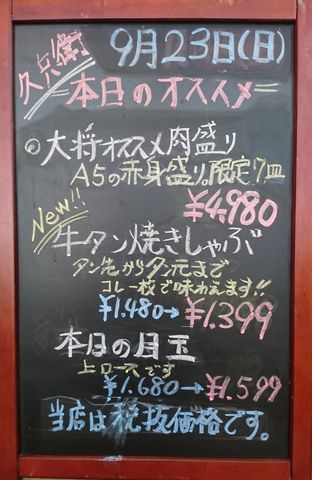 久兵衛
9月23日(日)
本日のオススメ
◎大将オススメ肉盛り
A5の赤身盛り。限定7皿
¥4,980
New!!
牛タン焼きしゃぶ
タン先からタン元まで
コレ一枚で味わえます!!
¥1.480→¥1.399
本日の目玉
上ロースです
¥1.680→¥1.599
当店は税抜価格です。